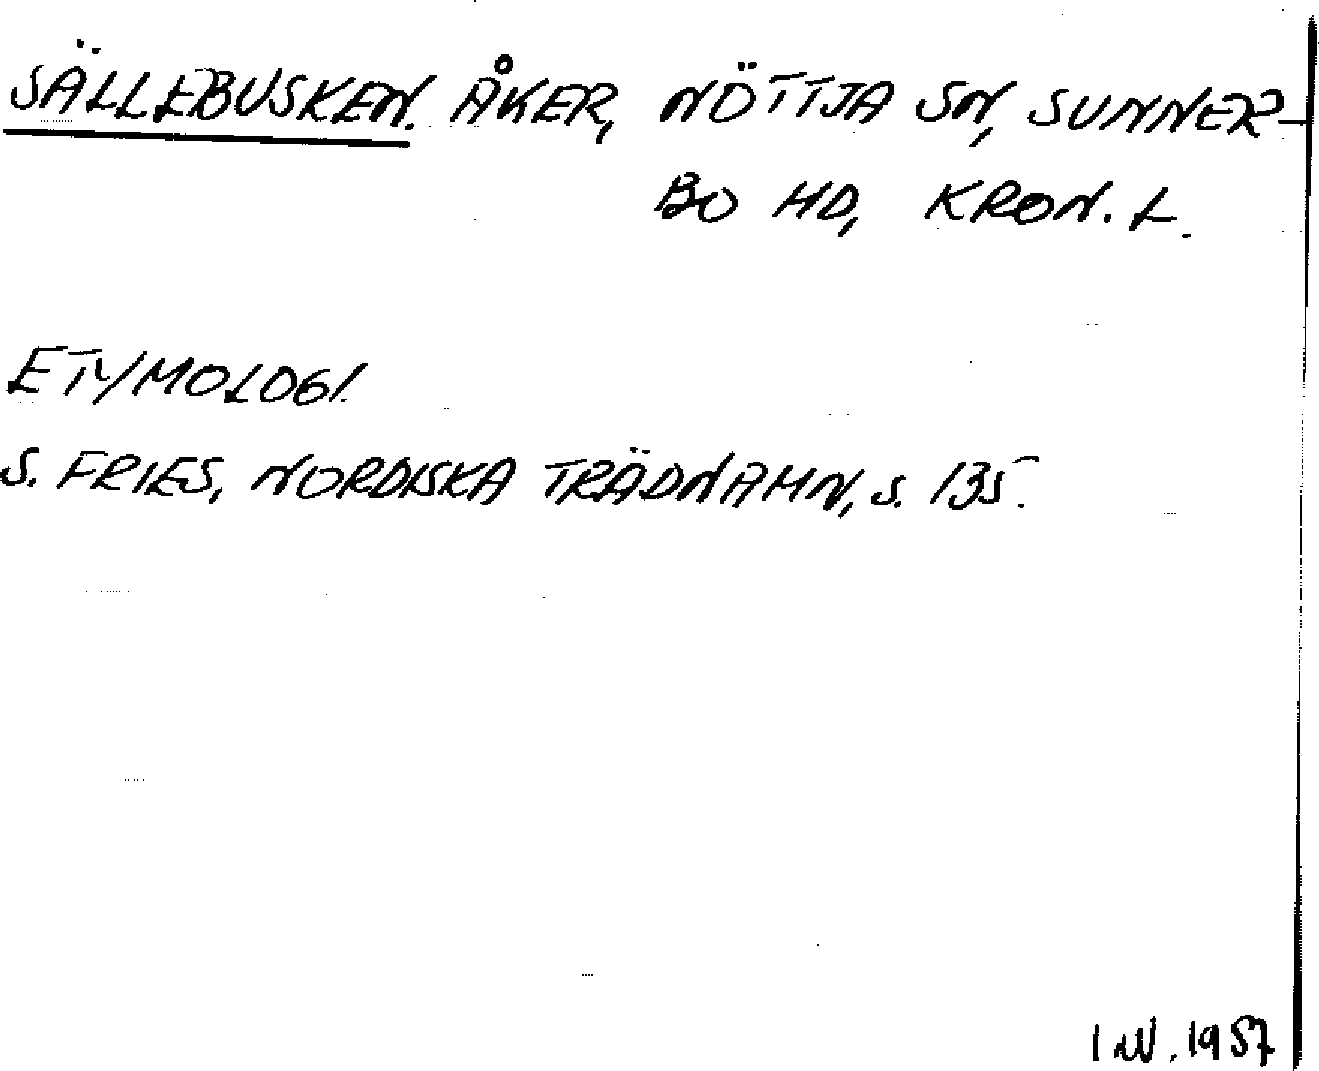 SÄLLEBUSKEN. ÅKER, NÖTTJA SN, SUNNER-
BO HD, KRON. L.
ETYMOLOGI.
S. FRIES, NORDISKA TRÄDNAMN, S. 135.
IW. 1957